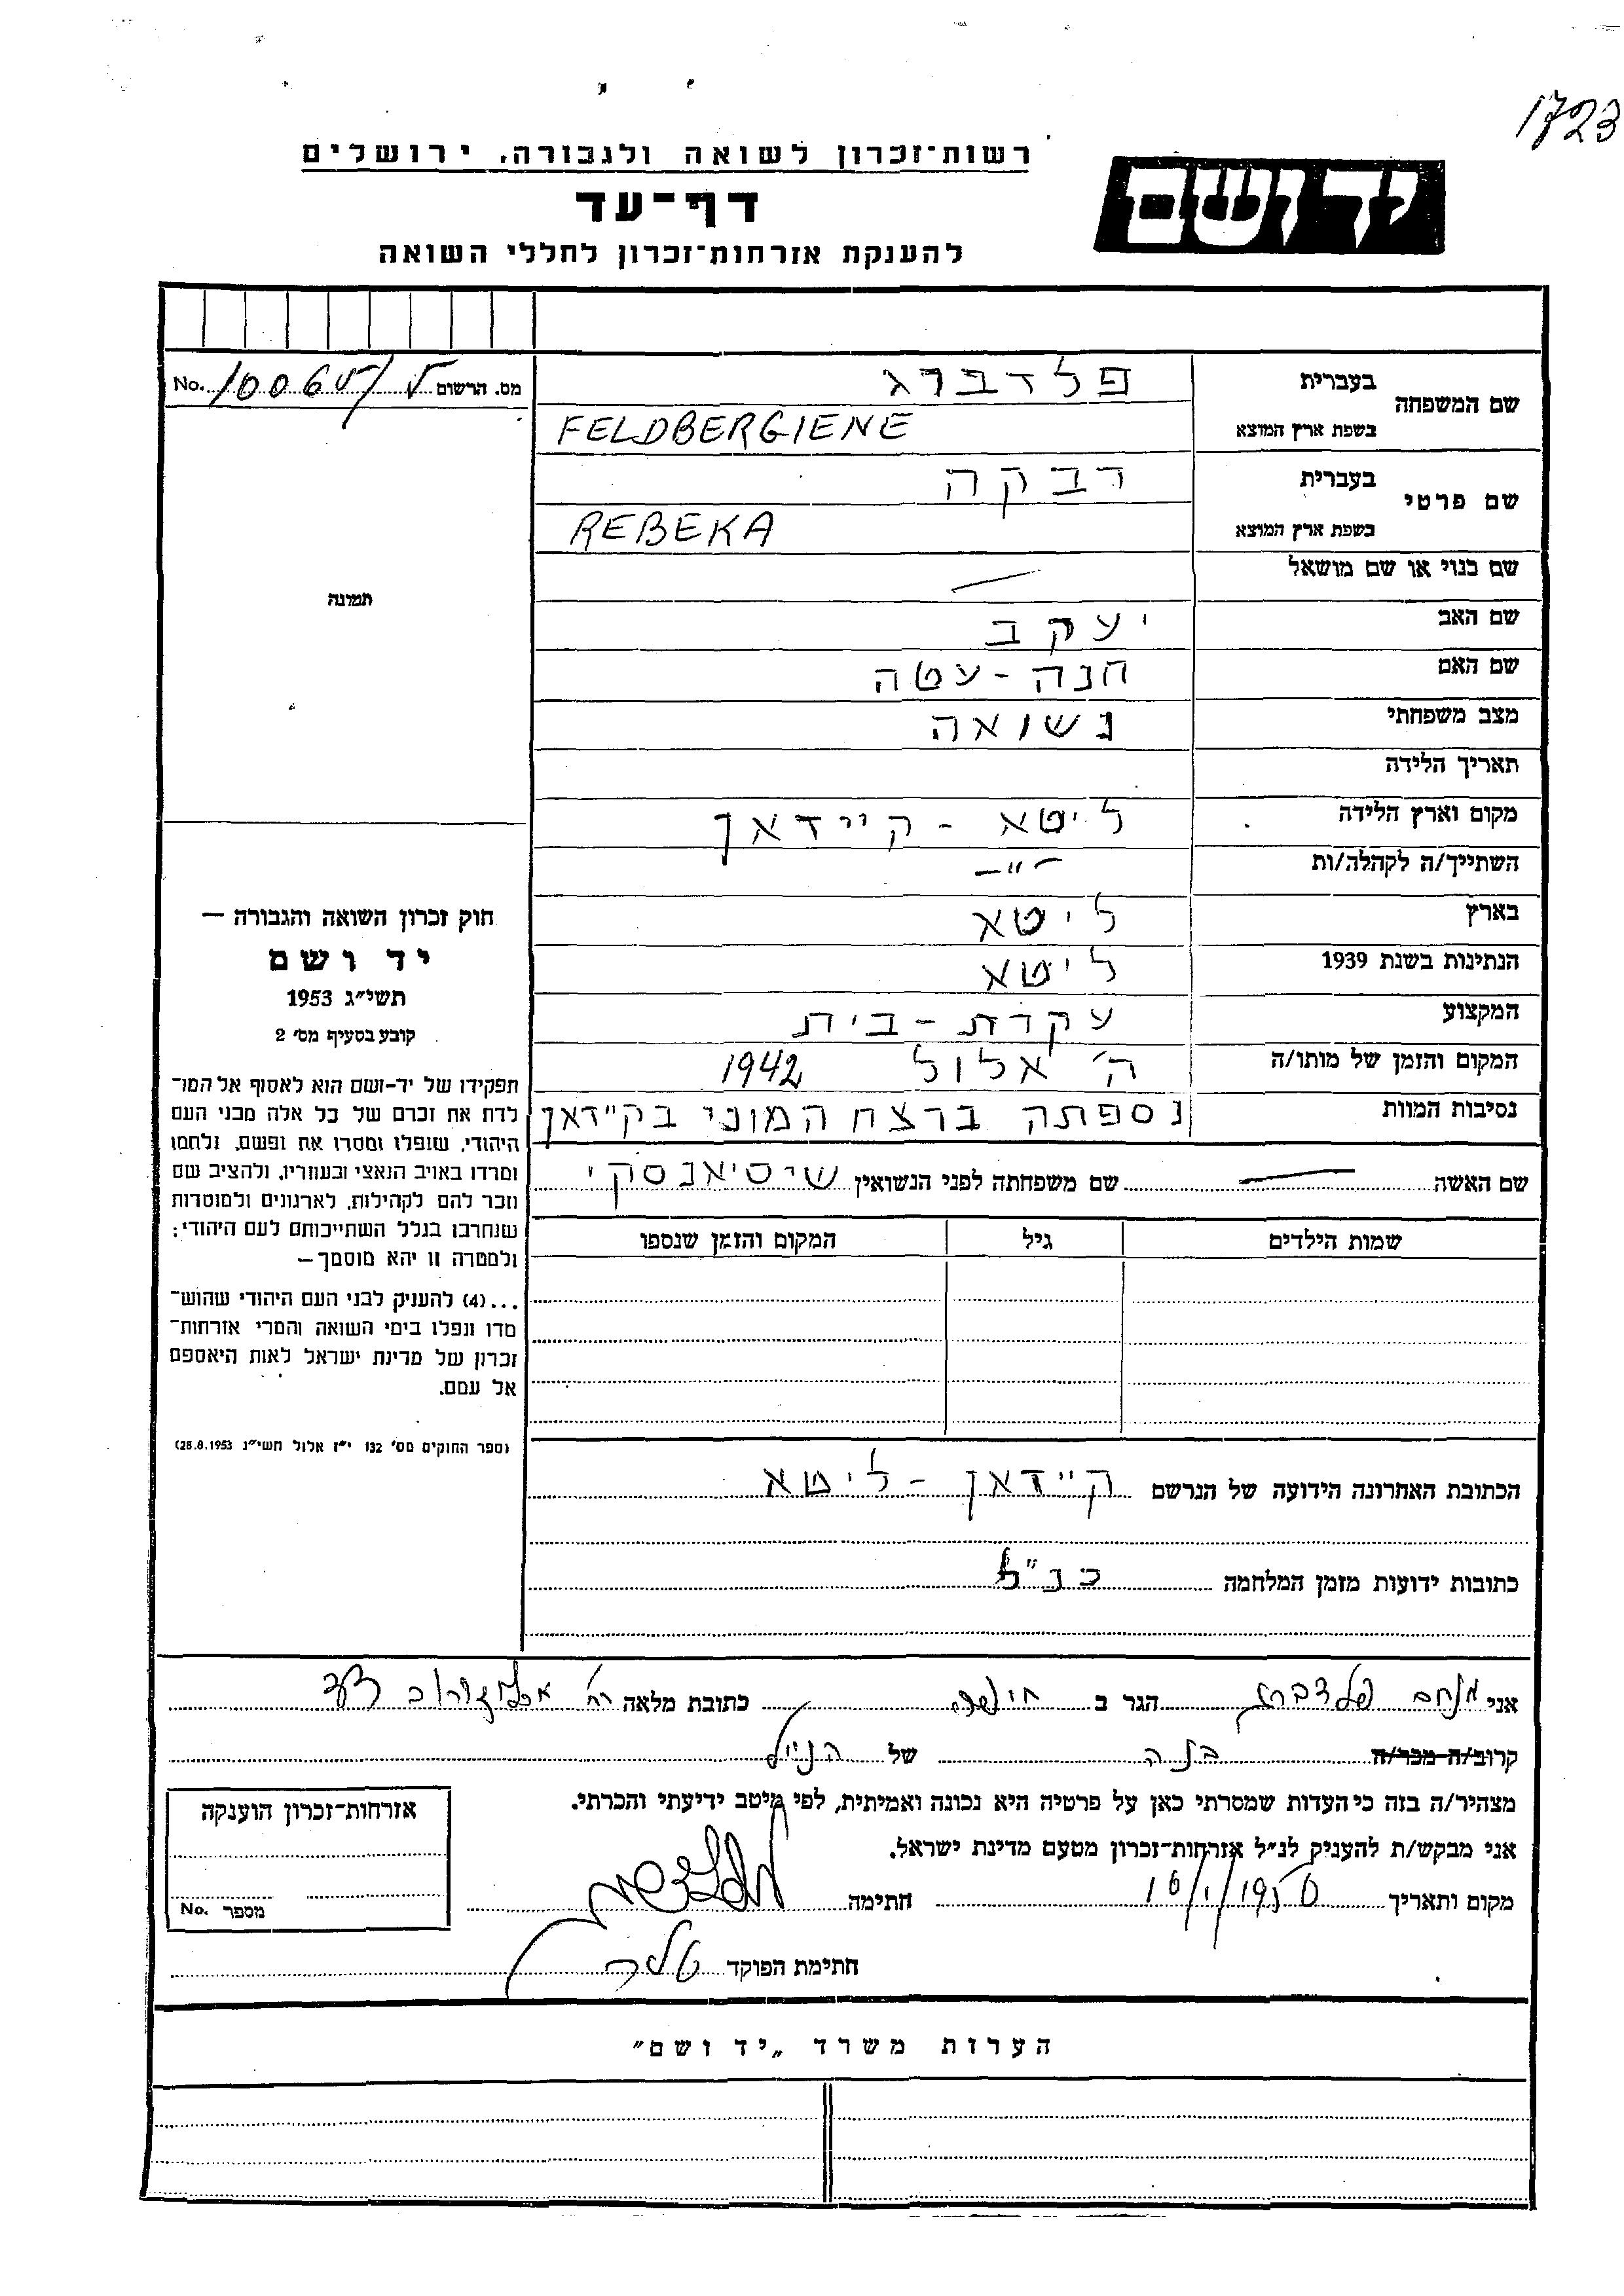 1723
רשות־זכרון לשואה ולגבורה, ירושלים
יד ושם
דף־עד
להענקת אזרחות־זכרון לחללי השואה
שם המשפחה
בעברית פלדברג
בשפת ארץ המוצא FELDBERGIENE
שם פרטי
בעברית רבקה
בשפת ארץ המוצא REBEKA
שם כנוי או שם מושאל —
שם האב יעקב
שם האם חנה - עטה
מצב משפחתי נשואה
תאריך הלידה
מקום וארץ הלידה ליטא - קיידאן
השתייך/ה לקהלה/ות -"-
בארץ ליטא
הנתינות בשנת 1939 ליטא
המקצוע עקרת - בית
המקום והזמן של מותו/ה ה' אלול 1942
נסיבות המוות נספתה ברצח המוני בקיידאן
שם האשה — שם משפחתה לפני הנשואין שיסיאנסקי
שמות הילדים גיל המקום והזמן שנספו
הכתובת האחרונה הידועה של הנרשם קיידאן - ליטא
כתובות ידועות מזמן המלחמה כנ"ל
מס. הרשום No.
תמונה
חוק זכרון השואה והגבורה —
יד ושם
תשי״ג 1953
קובע בסעיף מס׳ 2
תפקידו של יד-ושם הוא לאסוף אל המו־
לדת את זכרם של כל אלה מבני העם
היהודי, שנפלו ומסרו את נפשם, נלחמו
ומרדו באויב הנאצי ובעוזריו, ולהציב שם
וזכר להם לקהילות, לארגונים ולמוסדות
שנחרבו בגלל השתייכותם לעם היהודי;
ולמטרה זו יהא מוסמך—
...(4) להעניק לבני העם היהודי שהוש־
מדו ונפלו בימי השואה והמרי אזרחות־
זכרון של מדינת ישראל לאות היאספם
אל עמם.
(ספר החוקים מס׳ 132 י״ז אלול תשי״ג 28.8.1953)
אני מנחם פלדברג הגר ב חיפה כתובת מלאה רח'
קרוב/ה מכר/ה בנה של הנ"ל
מצהיר/ה בזה כי העדות שמסרתי כאן על פרטיה היא נכונה ואמיתית, לפי מיטב ידיעתי והכרתי.
אני מבקש/ת להעניק לנ״ל אזרחות־זכרון מטעם מדינת ישראל.
מקום ותאריך חתימה
חתימת הפוקד
אזרחות־זכרון הוענקה
מספר No.
הערות משרד „יד ושם״